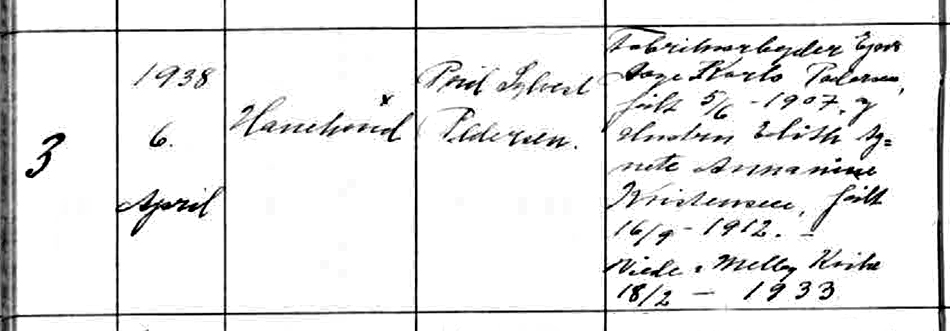 3
1938
6.
April
Hanehoved
Poul Sylvest
Pedersen.
Fabriksarbejder Ejner
Aage Karlo Pedersen,
født 5/6 - 1907. og
Hustru Edith Ag=
nete Annamine
Kristensen, født
16/9 - 1912. -
Viede i Melby Kirke
18/2 - 1933